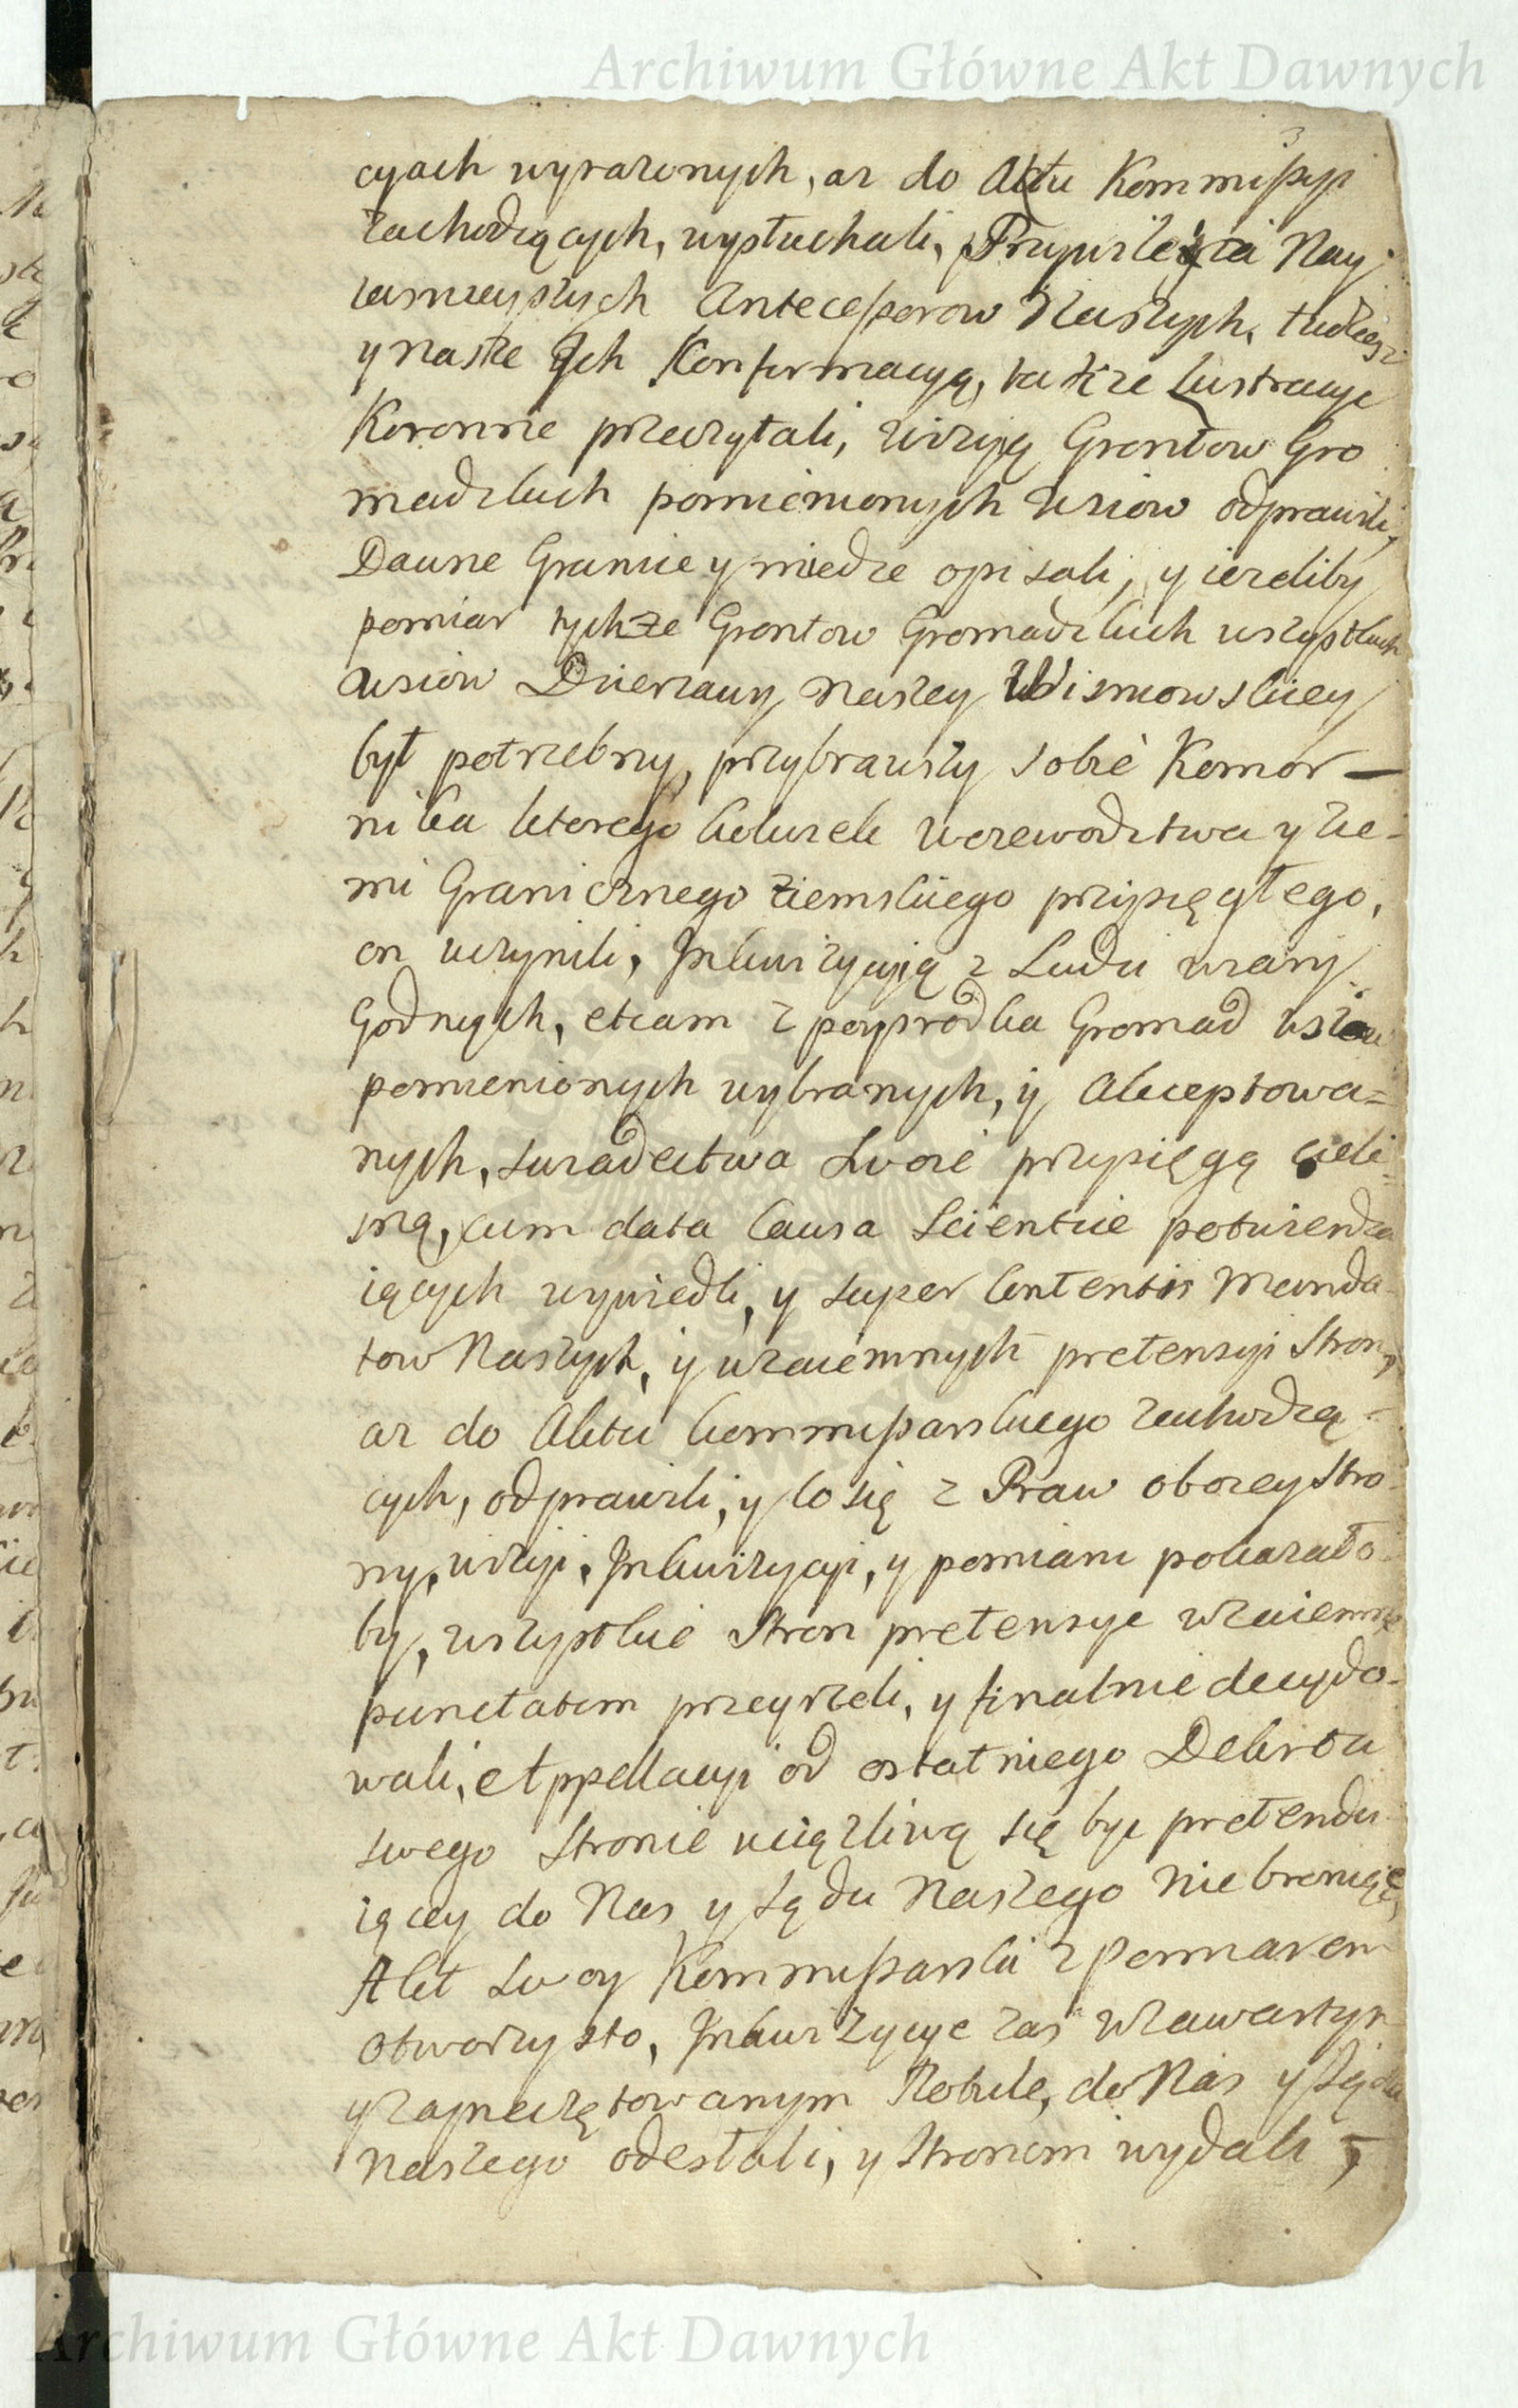 Archiwum Główne Akt Dawnych
3
cyach wyrazonych, az do Aktu Kommissyi
zachodzących, wysłuchali, Przywileia Nay
iasnieyszych Antecessorow Naszych, tudziesz
y nasze Ich Konfirmacyą, takze Lustracye
Koronne przeczytali, wizyią Grontow Gro
madzkich pomienionych wsiow odprawili,
Dawne Granice y miedze opisali, y iezeliby
pomiar tychze Grontow Gromadzkich wszystkich
wsiow Dzierzawy Naszey Wisniowskiey
był potrzebny, przybrawszy sobie Komor-
nika ktorego kolwiek Wojewodztwa y Zie-
mi Granicznego Ziemskiego przysięgłego,
on uczynili, Inkwizycyią z Ludzi wiary
Godnych, etiam z posprodka Gromad wsiow
pomienionych wybranych, y Akceptowa=
nych, swiadectwa swoie przysięgą cieli=
sną, cum data Causa Scientiae potwierdza
iących wywiedli, y super Contentis Manda-
tow Naszych, y wzaiemnych pretensyi Stron,
az do Aktu kommissarskiego zachodzą-
cych, odprawili, y co się z Praw oboiey Stro-
ny, wizyi, Inkwizycyi, y pomiaru pokazało-
by, wszystkie Stron pretensye wzaiemne
punctatim przeyrzeli, y finalnie decydo-
wali, Appellacyi od ostatniego Dekretu
swego Stronie uciązliwą się byc pretendu-
iącey do Nas y Sądu Naszego nie broniąc,
Akt swoy Kommissarski z pomiarem
otworzysto, Inkwizycye zas w zawartym
y zapieczętowanym Rotule, do Nas y Sądu
Naszego odesłali, y Stronom wydali,
Archiwum Główne Akt Dawnych